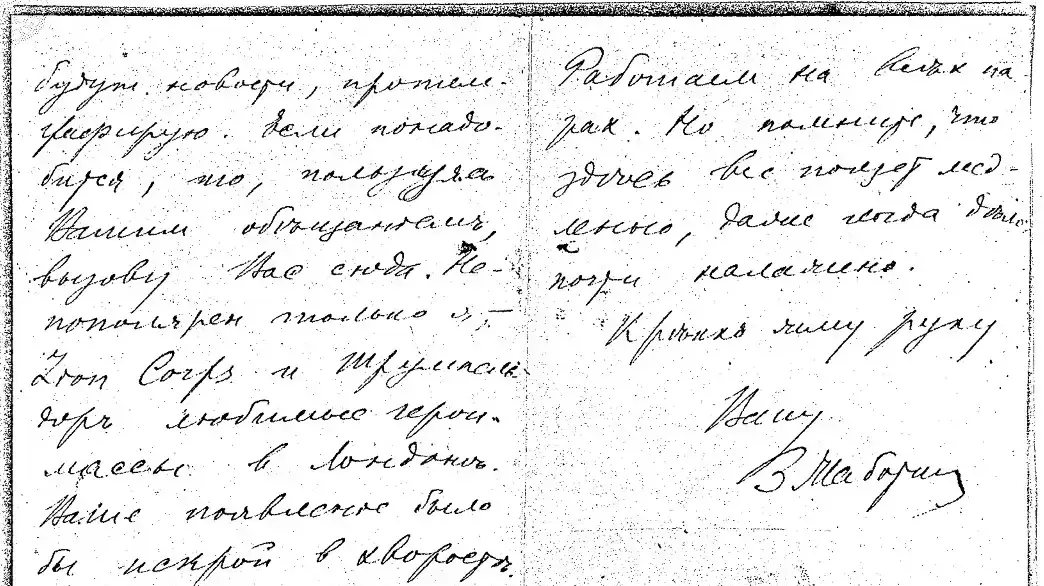 будут новости, протеле-
графирую. Если понадо-
бится, то, пользуясь
Вашим обѣщанiемъ,
вызову Вас сюда. Не-
популярен только я, —
Zion Corps и Трумпель-
доръ любимые герои
массы в Лондонѣ.
Ваше появленiе было
бы искрой в хворостъ.
Работаем на всѣх па-
рах. Но помните, что
здѣсь все ползет мед-
ленно, даже когда дѣло
почти налажено.
Крѣпко жму руку
Ваш
В Жаботин